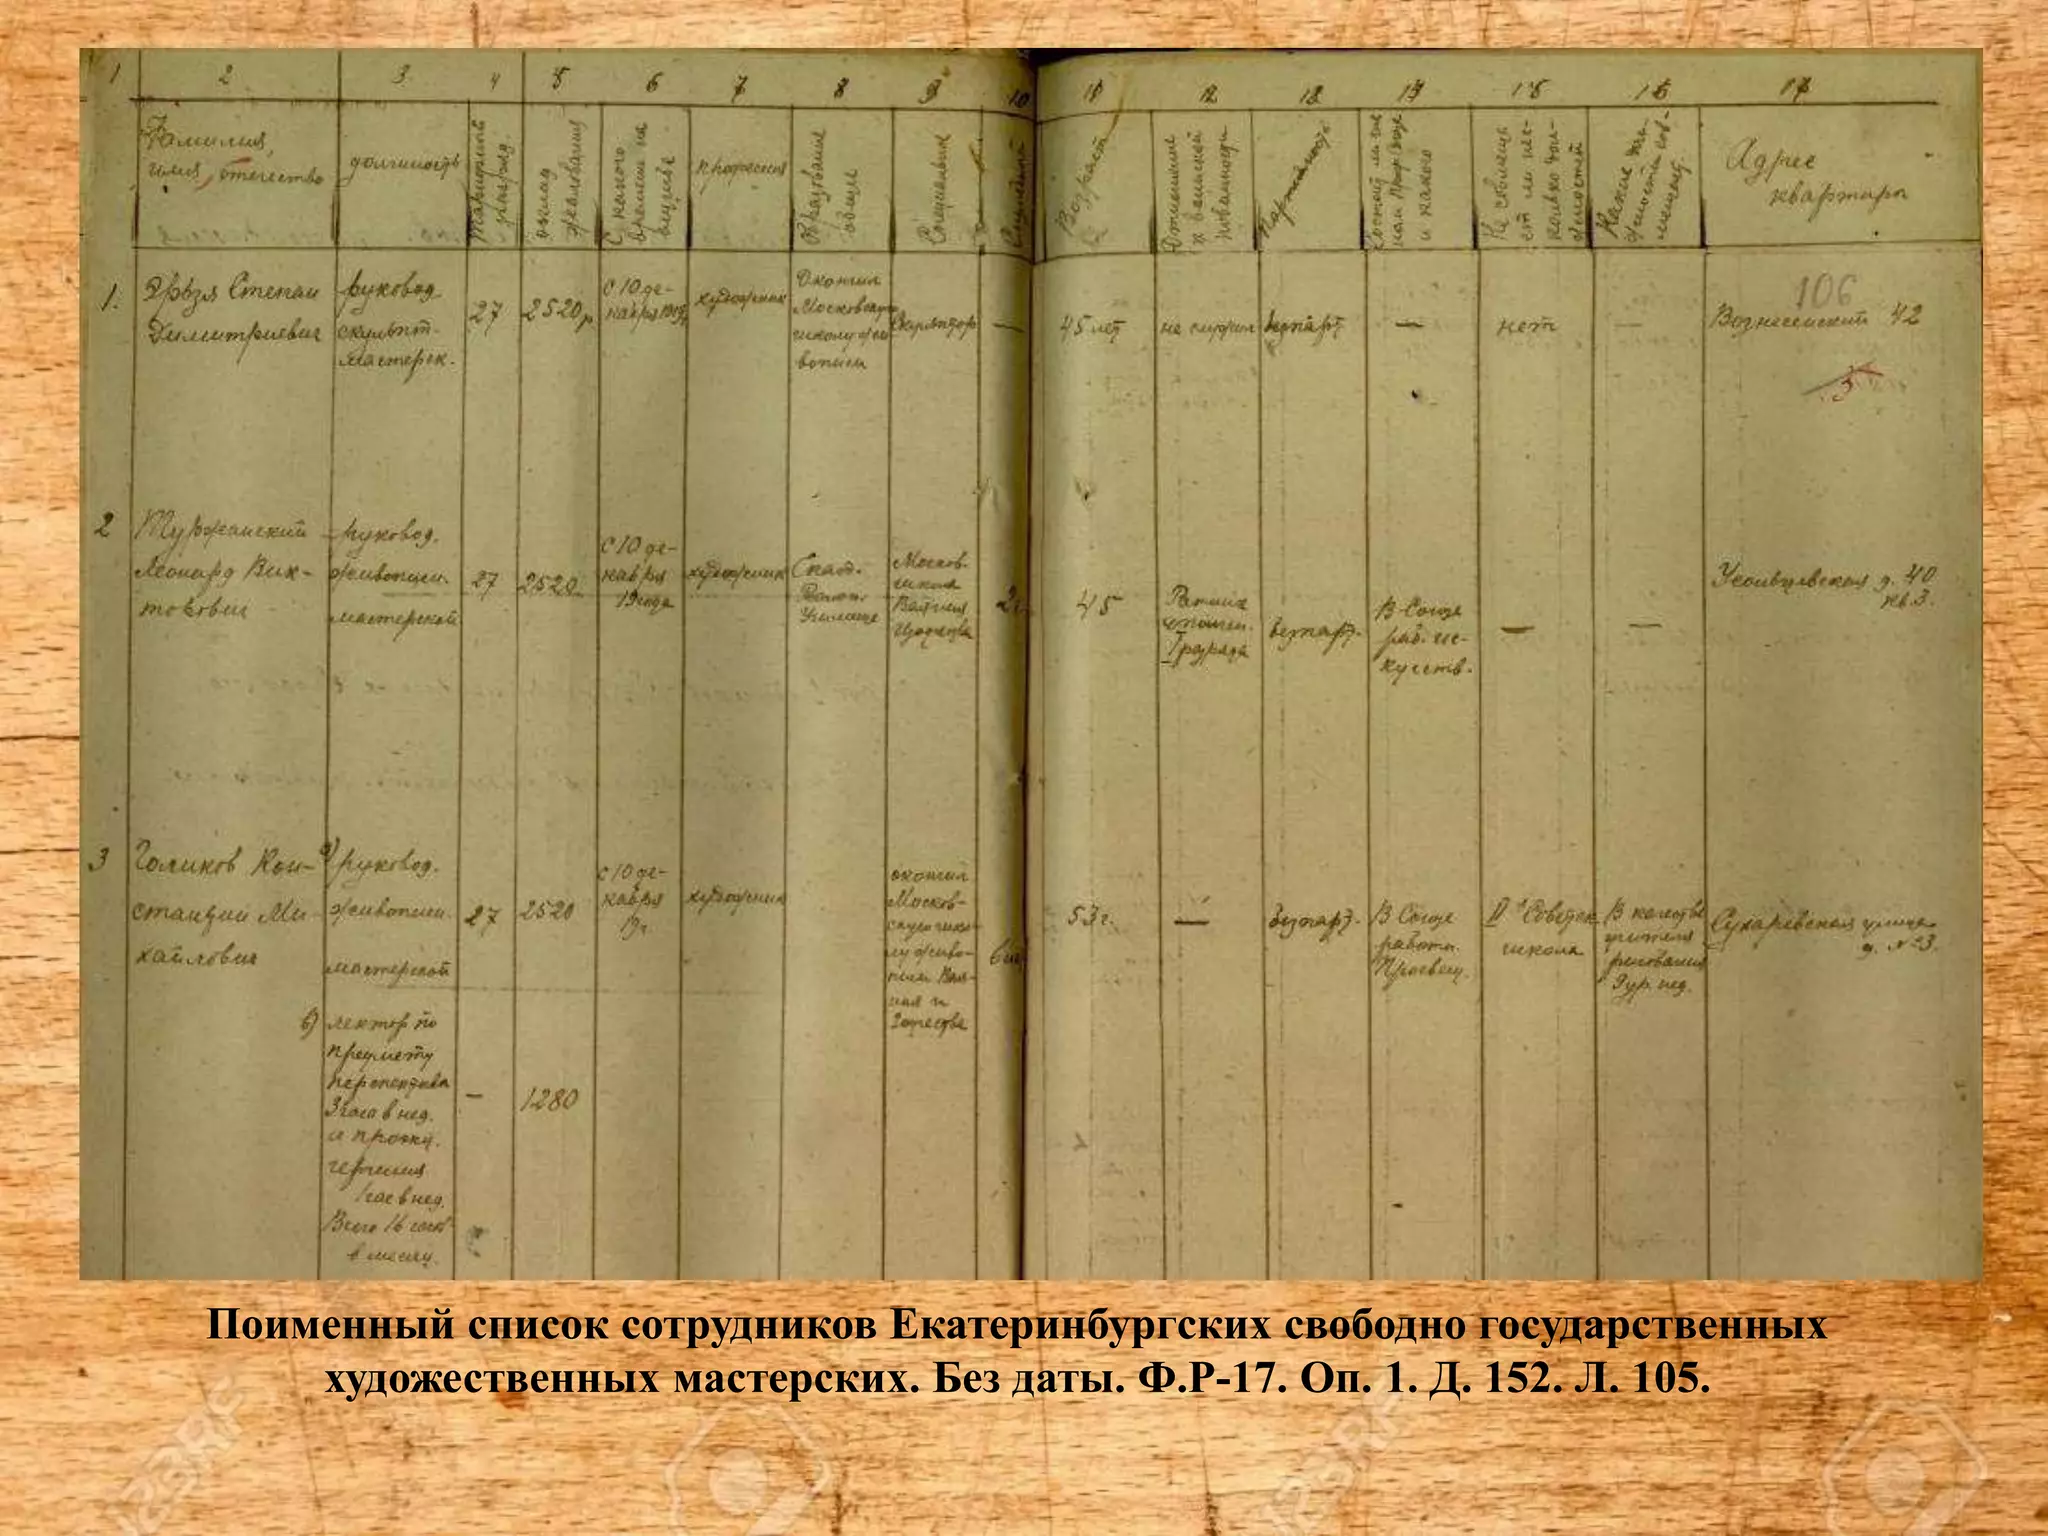 1 2 3 4 5 6 7 8 9 10 11 12 13 14 15 16 17
Фамилия,
имя, отчество
должность
Тарифный разряд
оклад жалования
С какого времени на
профессия
Образование общее
Специальное
Возраст
Отношение к воинской повинности
Партийность
Состоит ли
и какого
Не совмещает ли несколько должностей
Какие
Адрес
квартиры
106
1. Эрьзя Степан
Димитриевич
руковод.
скульпт.
мастерск.
27
2520р
с 10 декабря 1919
художник
Окончил
Московскую
школу живописи
Скульптор
—
45 лет
не служил
беспарт.
—
нет
—
Вознесенский 42
2 Туржанский
Леонард Викторович
руковод.
живописн.
мастерской
27
2520
с 10 декабря
19 года
художник
Училище
Москов.
школа
Ваяния
45
Ратник
беспарт.
В Союзе
раб. искусств.
—
—
д. 40
кв. 3.
3 Голиков Констанций Михайлович
а) руковод.
живописи.
мастерской
27
2520
с 10 декабря
19г.
художник
окончил
Московскую школу живописи Ваяния и
Зодчества
53г.
—
беспарт.
В Союзе
работн.
Просвещ.
II Советск
школа
В качестве
учителя
рисования
Сухаревская улица
д. №3.
б) лектор по
предмету
перспектива
3 часа в нед.
и
черчения
1 час в нед.
Всего 16 часов
в месяц.
—
1280
Поименный список сотрудников Екатеринбургских свободно государственных
художественных мастерских. Без даты. Ф.Р-17. Оп. 1. Д. 152. Л. 105.
123RF
123RF